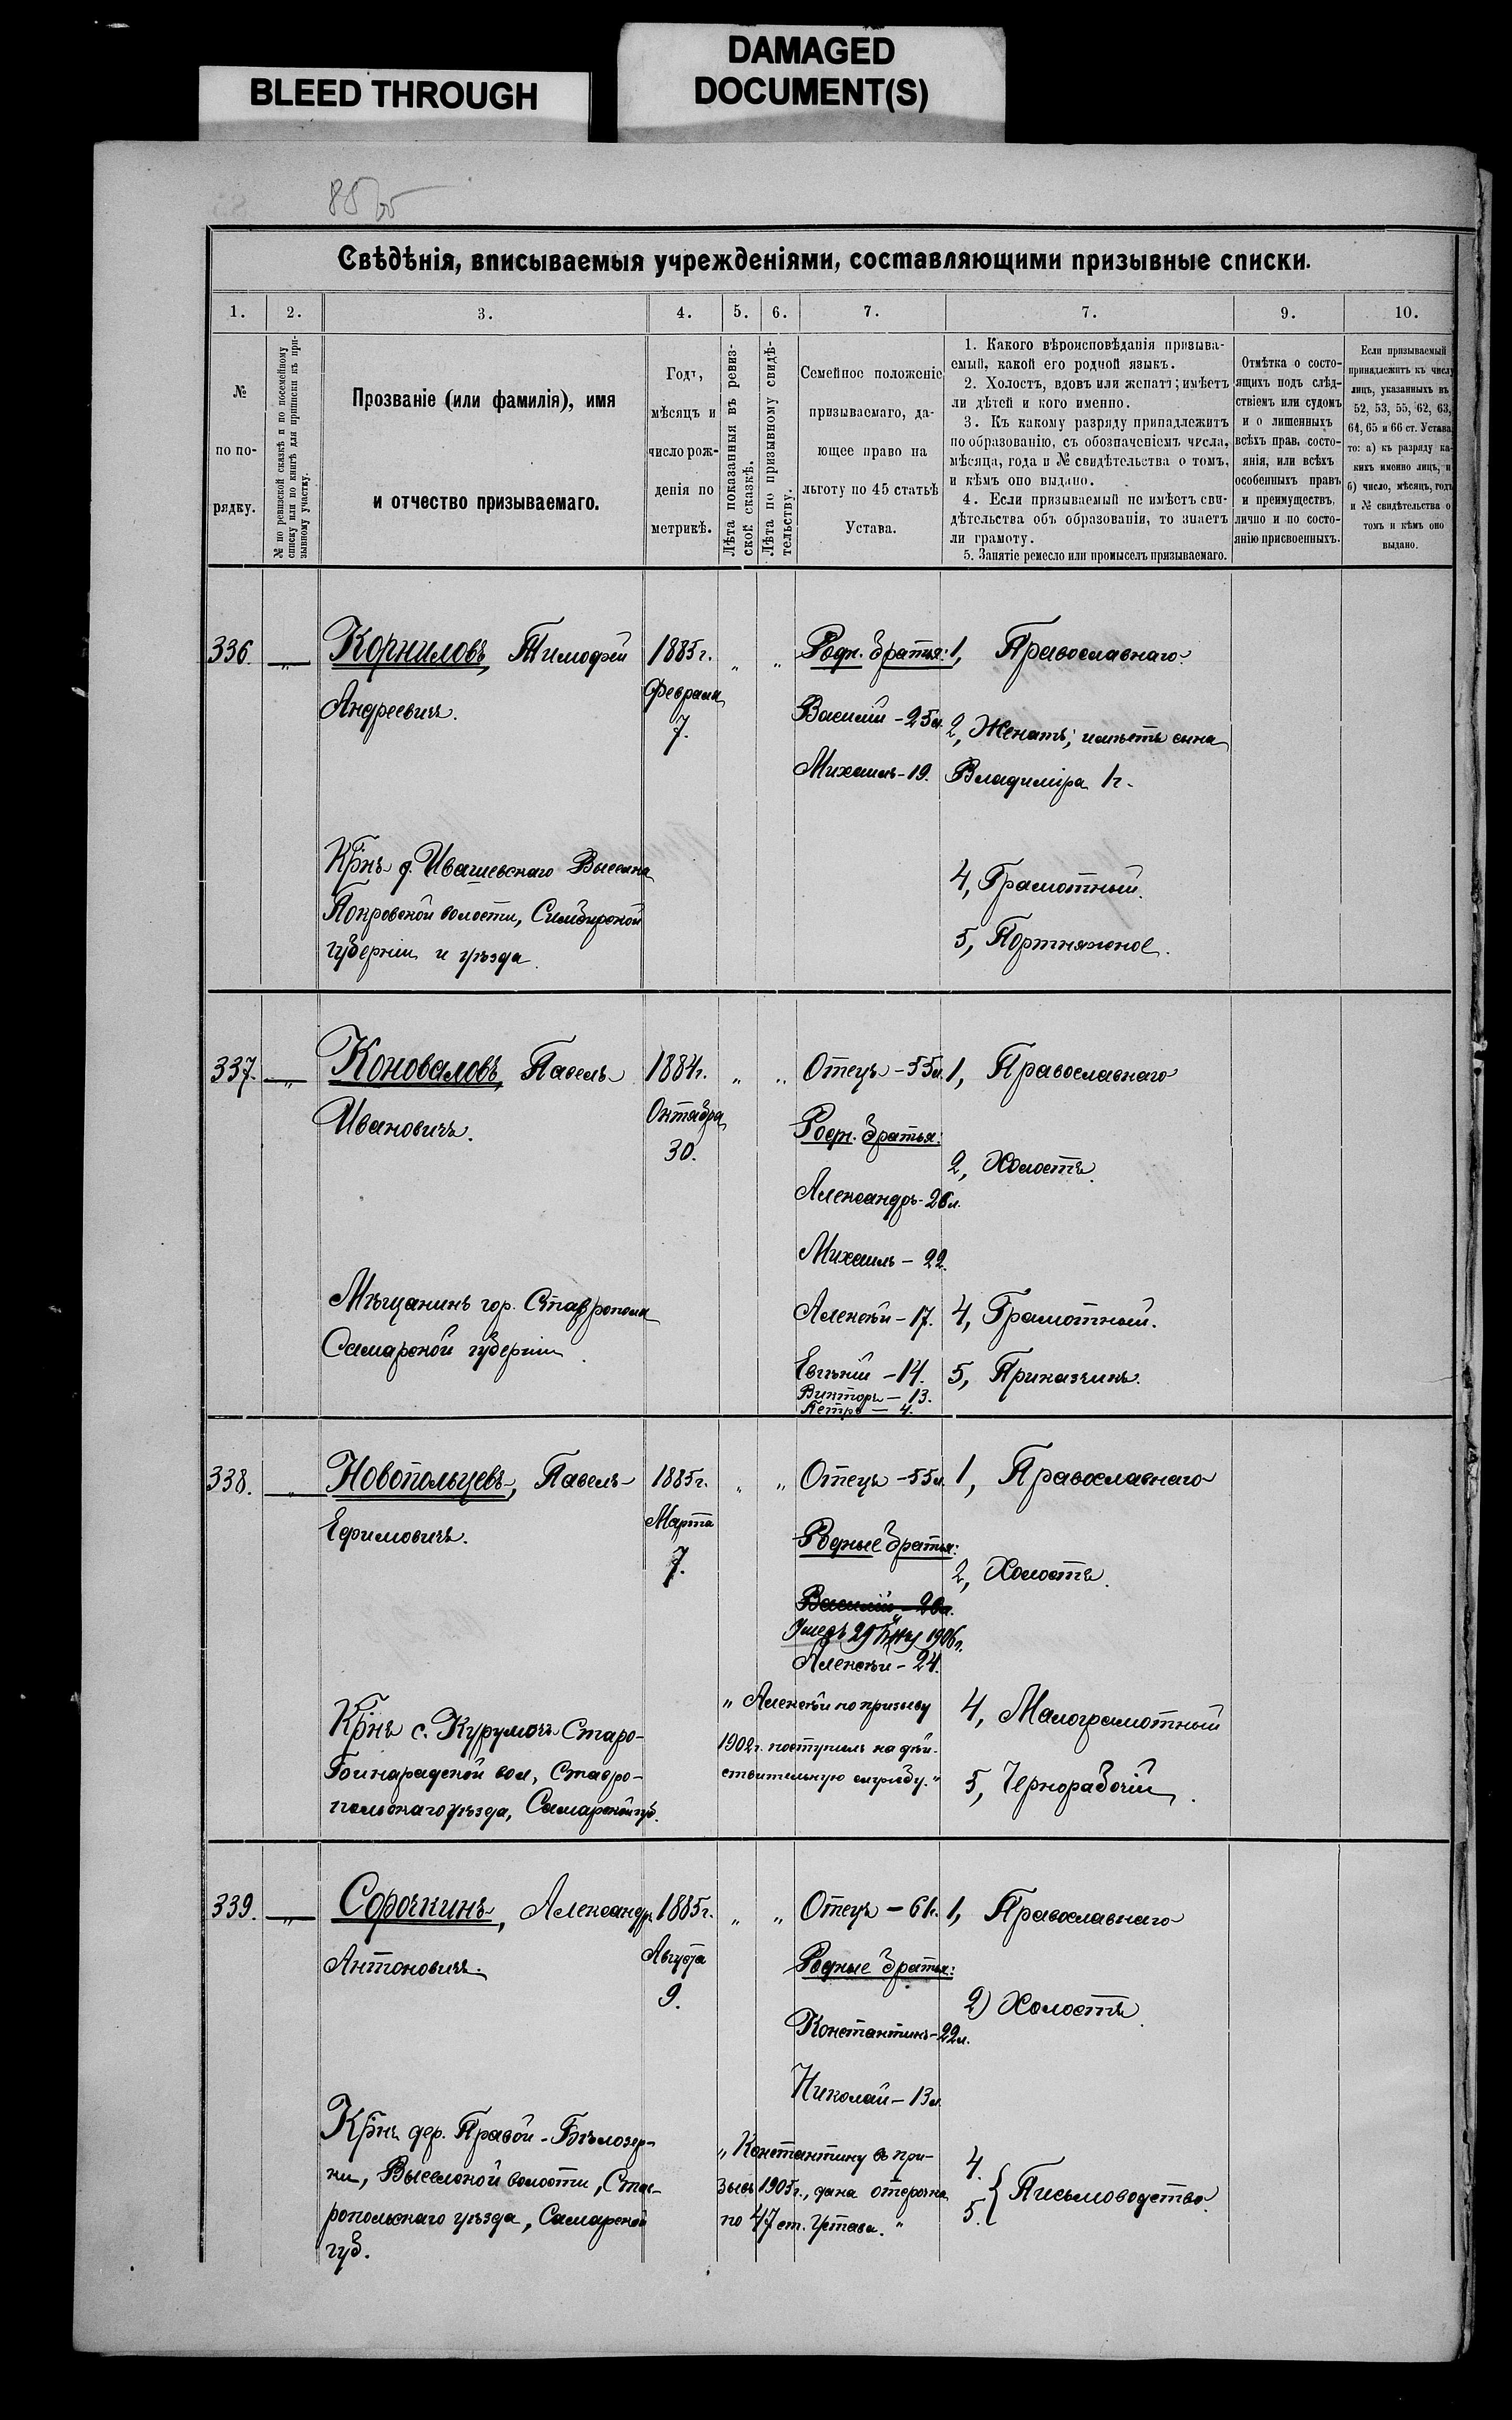 BLEED THROUGH
DAMAGED
DOCUMENT(S)
Свѣдѣнія, вписываемыя учрежденіями, составляющими призывные списки.
1. 2. 3. 4. 5. 6. 7. 7. 9. 10.
№
по по-
рядку.
№ по ревизской сказкѣ и по посемейному
списку или по книгѣ для приписки къ при-
зывному участку.
Прозваніе (или фамилія), имя
и отчество призываемаго.
Годъ,
мѣсяцъ и
число рож-
денія по
метрикѣ.
Лѣта показанныя въ ревиз-
ской сказкѣ.
Лѣта по призывному свидѣ-
тельству.
Семейное положеніе
призываемаго, да-
ющее право на
льготу по 45 статьѣ
Устава.
1. Какого вѣроисповѣданія призыва-
емый, какой его родной языкъ.
2. Холостъ, вдовъ или женатъ; имѣетъ
ли дѣтей и кого именно.
3. Къ какому разряду принадлежитъ
по образованію, съ обозначеніемъ числа,
мѣсяца, года и № свидѣтельства о томъ,
и кѣмъ оно выдано.
4. Если призываемый не имѣетъ сви-
дѣтельства объ образованіи, то знаетъ
ли грамоту.
5. Занятіе ремесло или промыселъ призываемаго.
Отмѣтка о состо-
ящихъ подъ слѣд-
ствіемъ или судомъ
и о лишенныхъ
всѣхъ прав. состо-
янія, или всѣхъ
особенныхъ правъ
и преимуществъ,
лично и по состо-
янію присвоенныхъ.
Если призываемый
принадлежитъ къ числу
лицъ, указанныхъ въ
52, 53, 55, 62, 63,
64, 65 и 66 ст. Устава,
то: а) къ разряду ка-
кихъ именно лицъ, и
б) число, мѣсяцъ, годъ
и № свидѣтельства о
томъ и кѣмъ оно
выдано.
336. „ Корниловъ, Тимофей
Андреевичъ.
Крнъ д. Ивашевскаго Выселка
Покровской волости, Симбирской
губерніи и уѣзда.
1885 г.
Февраля
7.
„ „
Родн. братья:
Василій - 25 л.
Михаилъ - 19.
1, Православнаго.
2, Женатъ; имѣетъ сына
Владиміра 1 г.
4, Грамотный.
5, Портняжное.
337. „ Коноваловъ, Павелъ
Ивановичъ.
Мѣщанинъ гор. Ставрополя
Самарской губерніи.
1884 г.
Октября
30.
„ „
Отецъ - 55 л.
Родн. братья:
Александръ - 26 л.
Михаилъ - 22.
Алексѣй - 17.
Евгеній - 14.
Викторъ - 13.
Петръ - 4.
1, Православнаго
2, Холостъ.
4, Грамотный.
5, Приказчикъ.
338. „ Новопольцевъ, Павелъ
Ефимовичъ.
Крнъ с. Курумочъ Старо-
Бинарадской вол., Ставро-
польскаго уѣзда, Самарской губ.
1885 г.
Марта
7.
„ „
Отецъ - 55 л.
Родные братья:
Василій - 26 л.
1906 г.
Алексѣй - 24.
„ Алексѣй по призыву
1902 г. поступилъ на дѣй-
ствительную службу."
1, Православнаго
2, Холостъ.
4, Малограмотный
5, Чернорабочій.
339. „ Сорочкинъ, Александръ
Антоновичъ.
Крнъ дер. Правой-Бѣлозер-
ки, Выселской волости, Став-
ропольскаго уѣзда, Самарской
губ.
1885 г.
Августа
9.
„ „
Отецъ - 61 г.
Родные братья:
Константинъ - 22 л.
Николай - 13 л.
„ Константину въ при-
зывъ 1905 г., дана отсрочка
по 47 ст. Устава."
1, Православнаго
2) Холостъ.
4.
5. { Письмоводство.